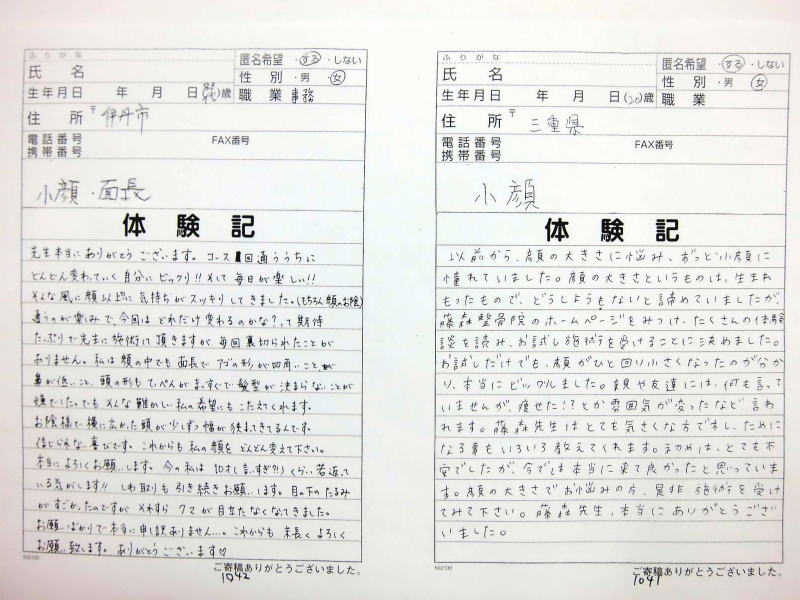 ふりがな
氏 名
匿名希望 ・する ・しない
性 別 ・男 ・女
生年月日 年 月 日 歳
職 業 事務
住 所 〒 伊丹市
電話番号 FAX番号
携帯番号
小顔・面長
体 験 記
先生本当にありがとうございます。コース1回通ううちに
どんどん変わっていく自分にビックリ!!そして毎日が楽しい!!
そんな風に顔以上に気持ちがスッキリしてきました。(もちろん顔のお陰)
通うのが楽しみで、今回はどれだけ変わるのかな?って期待
たっぷりで先生に施術して頂きますが毎回裏切られたことが
ありません。私は顔の中でも面長でアゴの形が四角いことが
鼻が低いこと、頭の形もてっぺんがまっすぐで髪型が決まらないことが
嫌でした。でもそんな難かしい私の希望にもこたえてくれます。
お陰様で横に広かった頭が少しずつ幅が狭まってきてるんです。
信じられない喜びです。これからも私の顔をどんどん変えて下さい。
本当によろしくお願いします。今の私は10才(言いすぎ?!)くらい若返って
いる気がします!!しわ取りも引き続きお願いします。目の下のたるみ
がすごかったのですがそれすらクマが目立たなくなってきました。
お願いばかりで本当に申し訳ありません…。これからも末長くよろしく
お願い致します。ありがとうございます♡
502130
ご寄稿ありがとうございました。
1042
ふりがな
氏 名
匿名希望 ・する ・しない
性 別 ・男 ・女
生年月日 年 月 日(20)歳
職 業
住 所 〒 三重県
電話番号 FAX番号
携帯番号
小顔
体 験 記
以前から、顔の大きさに悩み、ずっと小顔に
憧れていました。顔の大きさというものは、生まれ
もったもので、どうしようもないと諦めていましたが、
藤森整骨院のホームページをみつけ、たくさんの体験
談を読み、お試し施術を受けることに決めました。
お試しだけでも、顔がひと回り小さくなったのが分か
り、本当にビックリしました。親や友達には、何も言って
いませんが、痩せた!?とか雰囲気が変ったなど言わ
れます。藤森先生はとても気さくな方ですし、ために
なる事もいろいろ教えてくれます。初めは、とても不
安でしたが、今では本当に来て良かったと思っていま
す。顔の大きさでお悩みの方、是非施術を受け
てみて下さい。藤森先生、本当にありがとうござ
いました。
502130
ご寄稿ありがとうございました。
1041